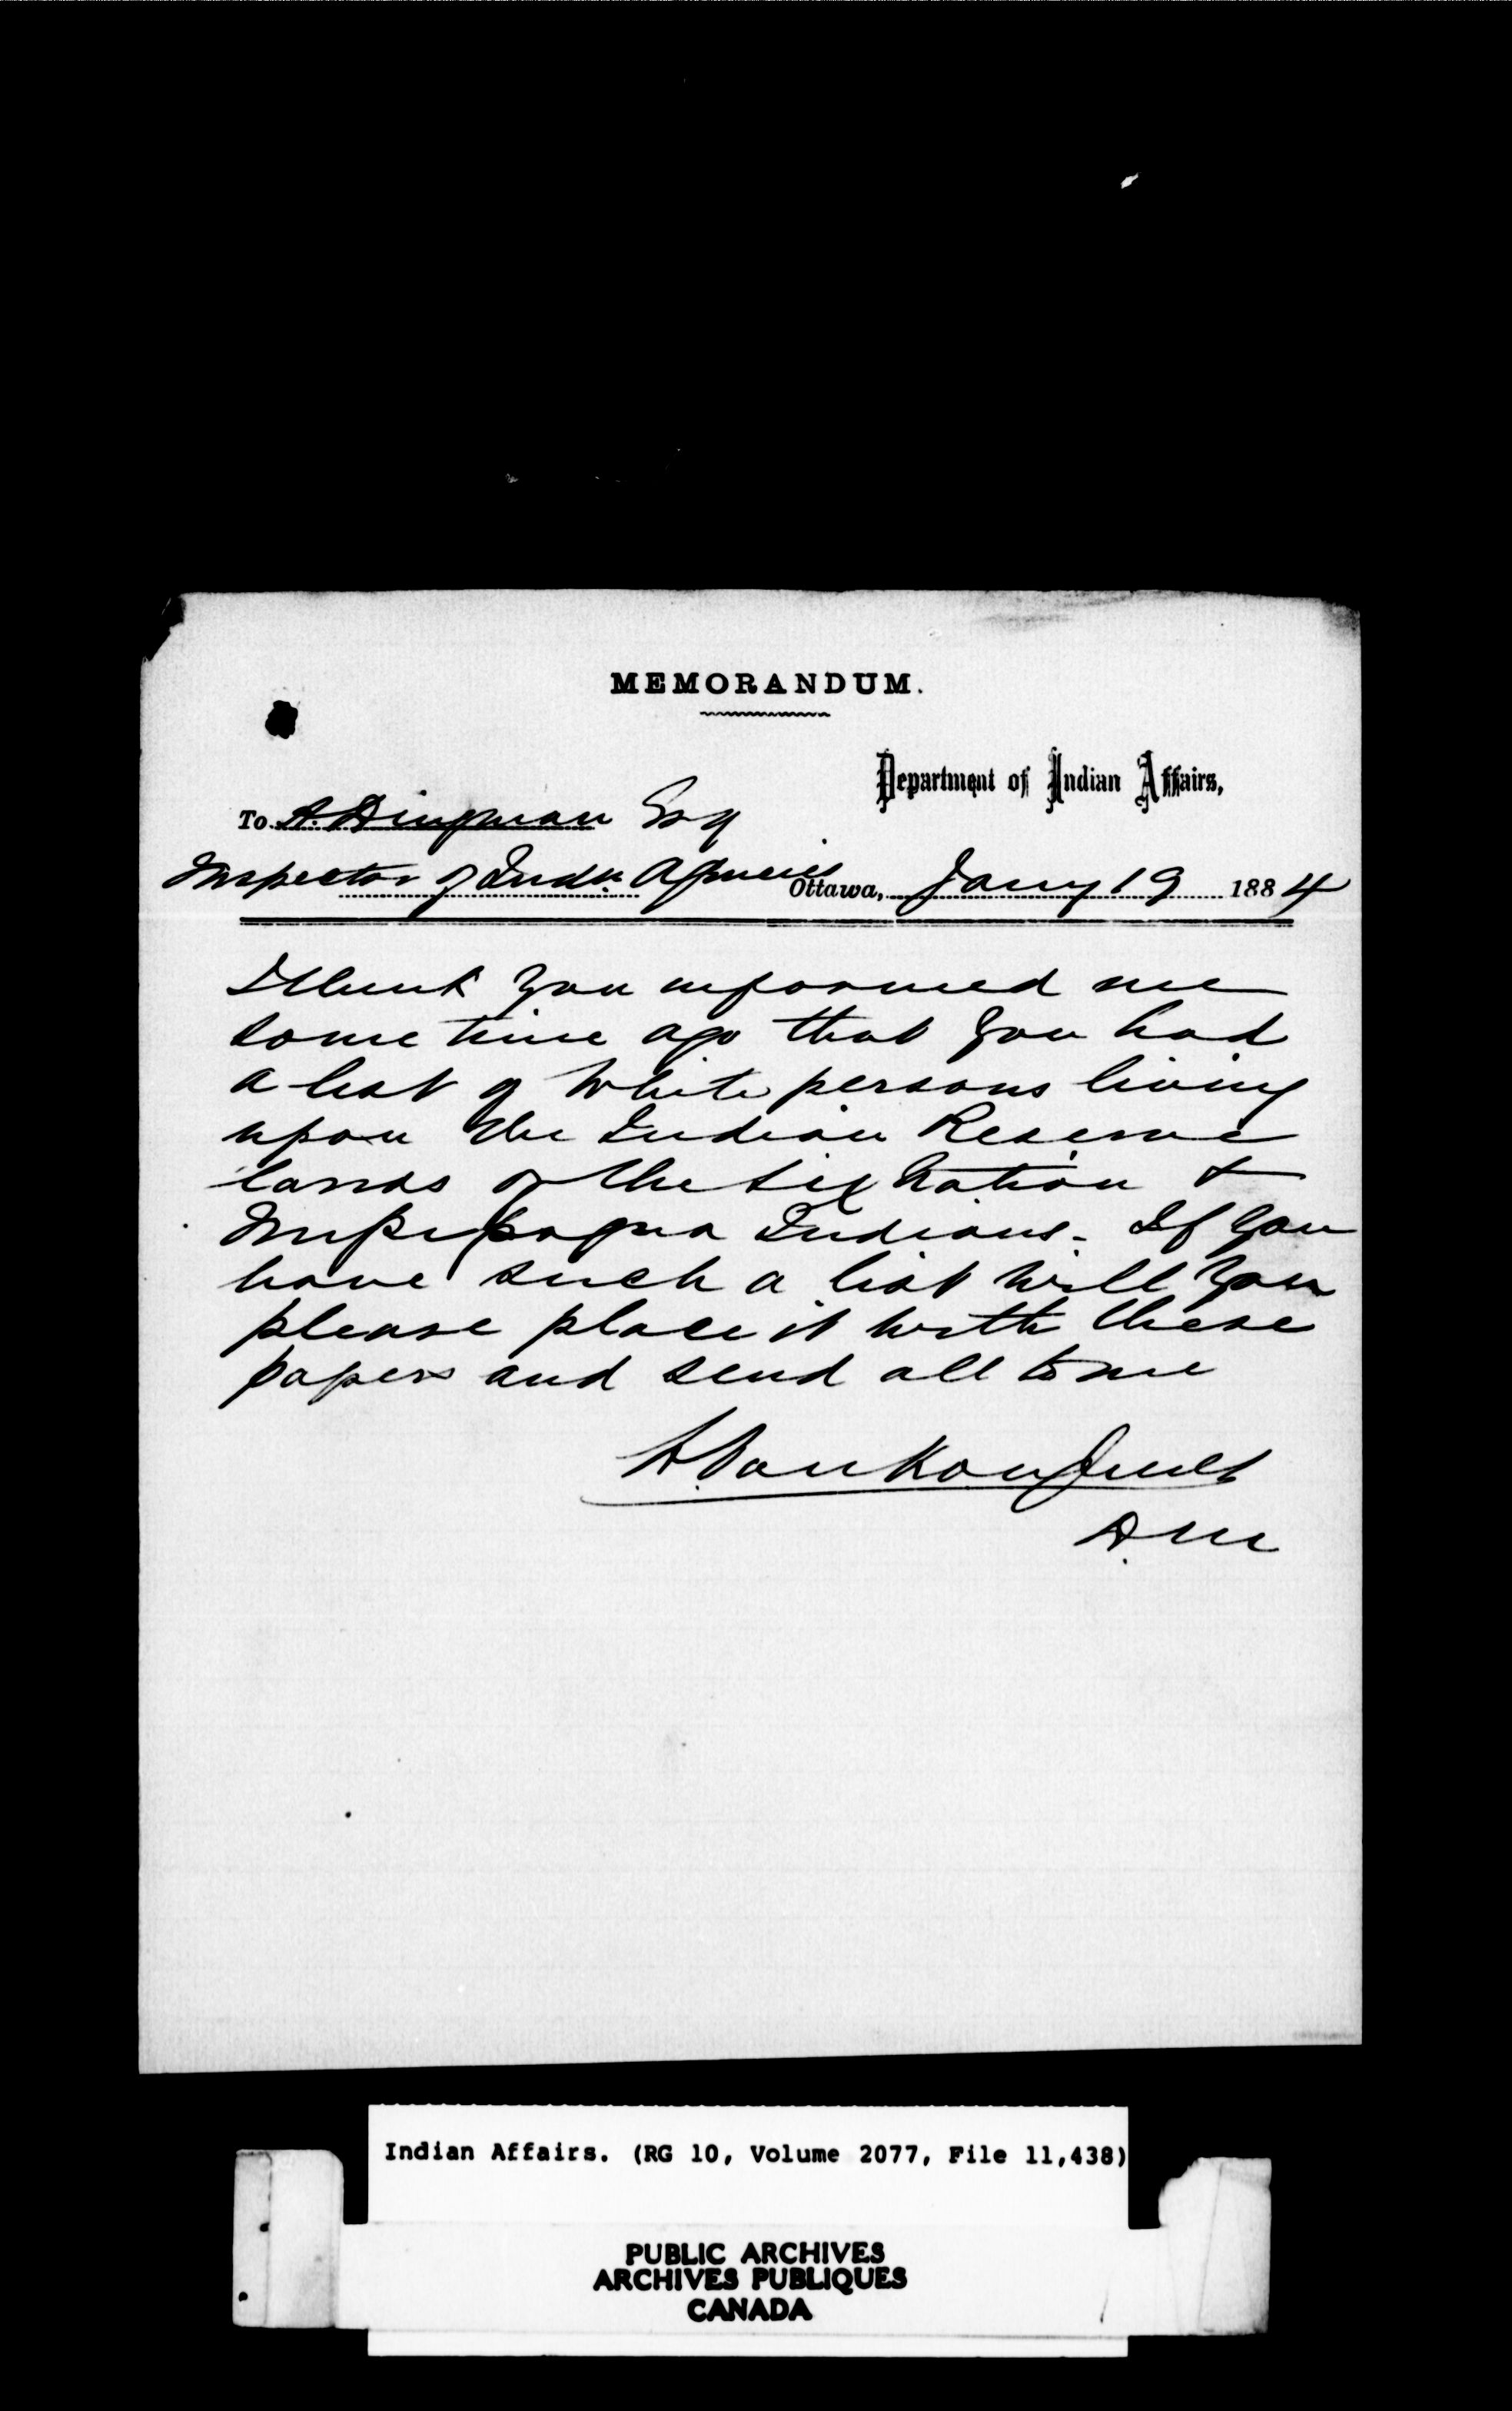 MEMORANDUM.
Department of Indian Affairs,
To A. Dingman Esq
Inspector of Indn Agencies
Ottawa, Jany 19 1884
I think you informed me
some time ago that you had
a list of White persons living
upon the Indian Reserve
lands of the Six Nation &
Indians. If you
have such a list will you
please place it with these
papers and send all to me
L. VanKoughnet
D.M
Indian Affairs. (RG 10, Volume 2077, File 11,438)
PUBLIC ARCHIVES
ARCHIVES PUBLIQUES
CANADA